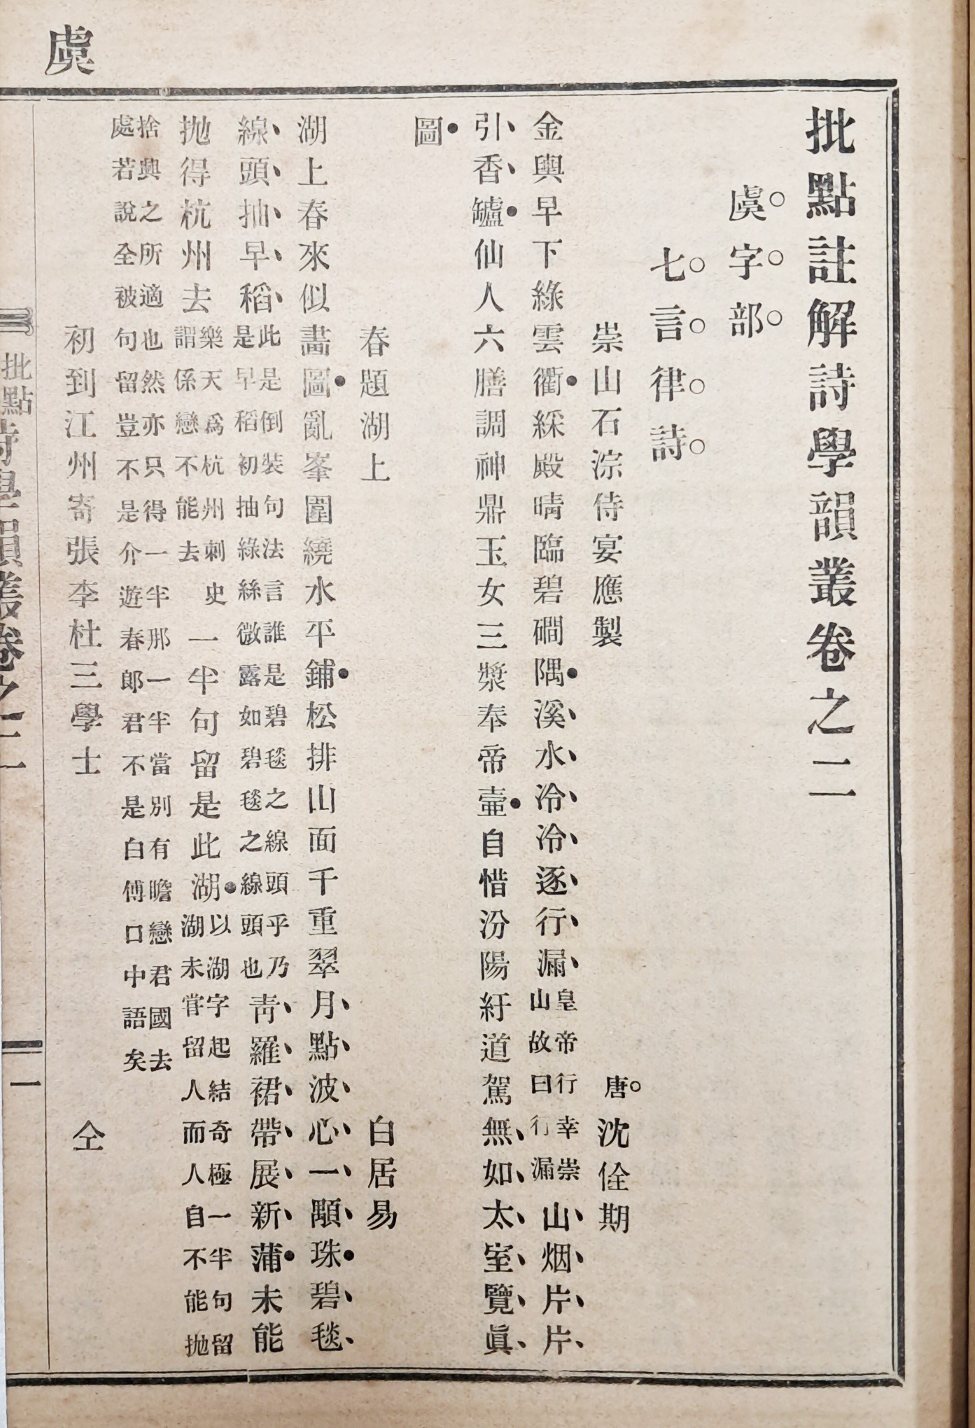 虞
批點註解詩學韻叢卷之二
虞字部
七言律詩
崇山石淙侍宴應製 唐 沈佺期
金輿早下綠雲衢綵殿晴臨碧磵隅溪水冷冷逐行漏皇帝行幸崇山故曰行漏山烟片片
引香鑪仙人六膳調神鼎玉女三漿奉帝壷自惜汾陽紆道駕無如太室覽眞
圖
春題湖上 白居易
湖上春來似畵圖亂峯圍繞水平鋪松排山面千重翠月點波心一顒珠碧毯
線頭抽早稻此是倒裝句法言誰是碧毯之線頭乎乃是早稻初抽綠絲微露如碧毯之線頭也靑羅裙帶展新蒲未能
拋得杭州去樂天爲杭州刺史謂係戀不能去一半句留是此湖以湖字起結奇極一半句留湖未甞留人而人自不能拋
捨興之所適也然亦只得一半那一半當別有瞻戀君國去
處若說全被句留豈不是介遊春郞君不是白傅口中語矣
初到江州寄張李杜三學士 仝
批點詩學韻叢卷之二 一